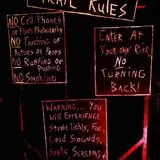 TRAIL RULES
NO Cell Phones
or Flash Photography
NO Touching of
Actors or Props
NO Running or
Pushing
NO Smoking
Enter At
Your Own Risk
NO
Turning
Back!
Warning... You
Will Experience
Strobe Lights, Fog,
Loud Sounds,
Screams &